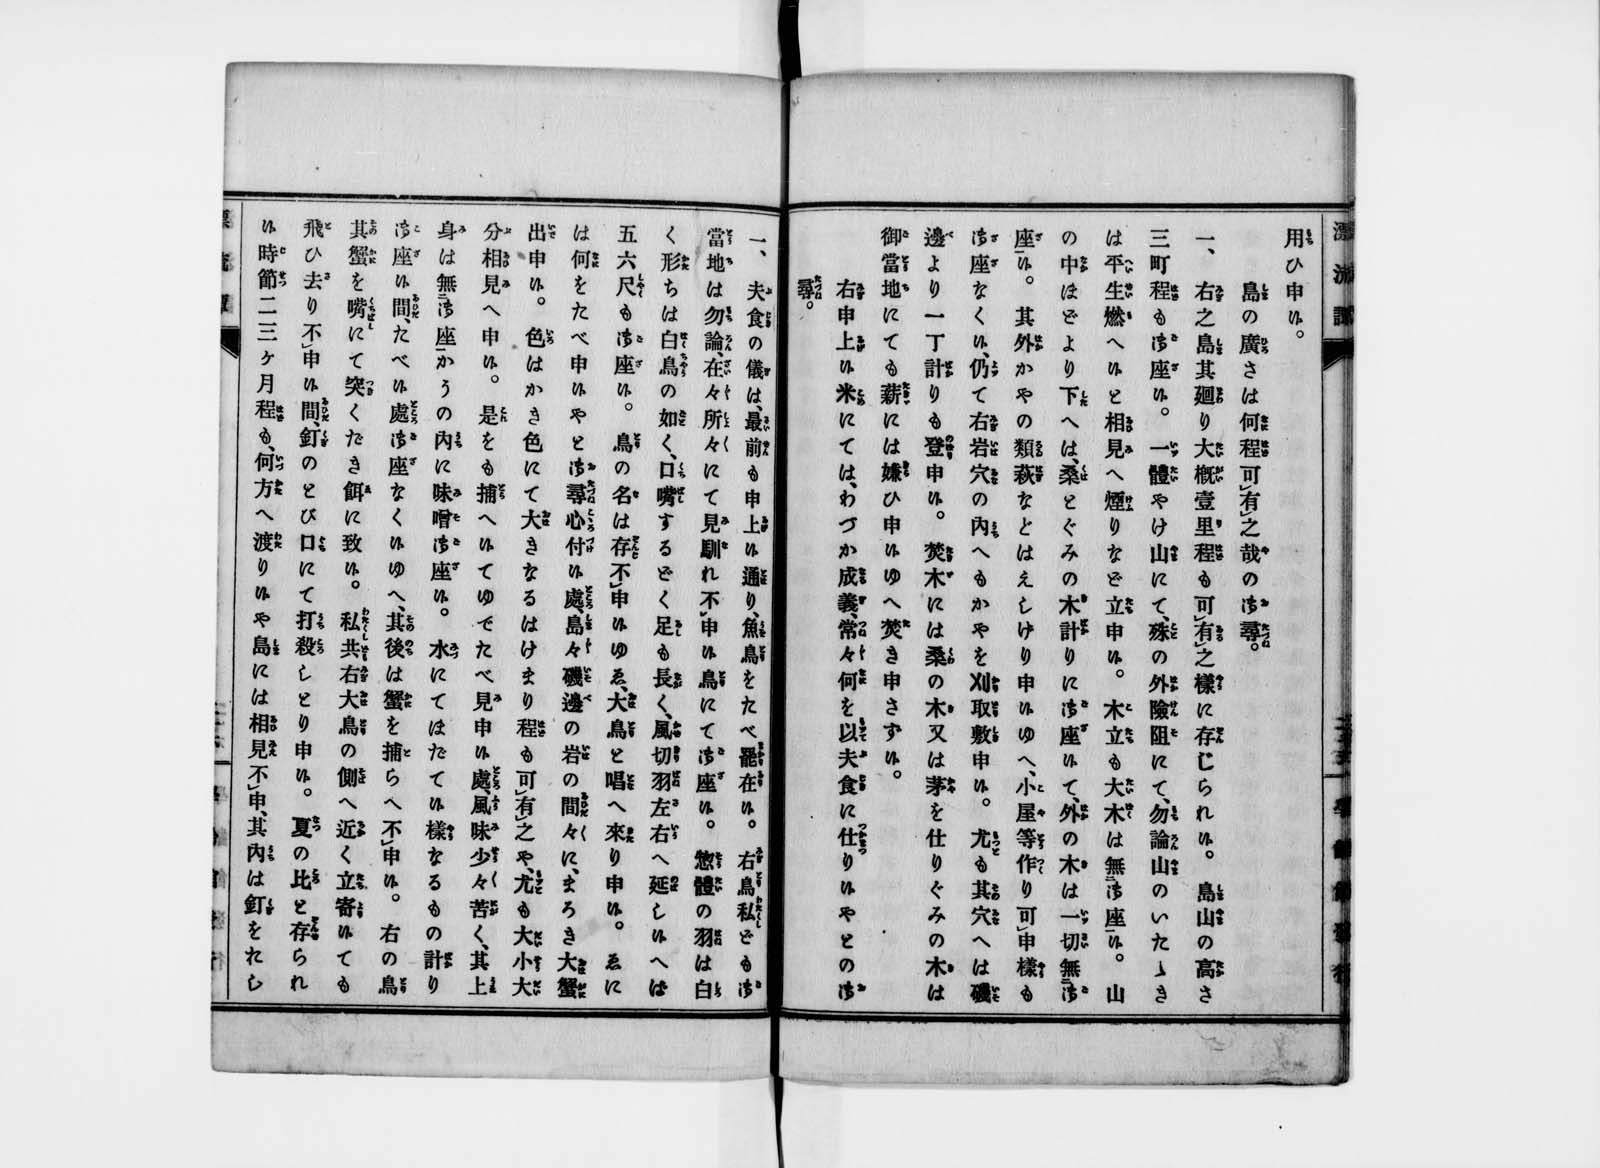 用ひ申候。
島の廣さは何程可有之哉の御尋。
一、右之島其廻り大概壹里程も可有之樣に存じられ候。島山の高さ
三町程も御座候。一體やけ山にて、殊の外險阻にて、勿論山のいたゞき
は平生燃へ候と相見へ煙りなど立申候。木立も大木は無御座候。山
の中ほどより下へは、桑とぐみの木計りに御座候て、外の木は一切無御
座候。其外かやの類萩などはえしけり申候ゆへ、小屋等作り可申樣も
御座なく候、仍て右岩穴の內へもかやを刈取敷申候。尤も其穴へは磯
邊より一丁計りも登申候。焚木には桑の木又は茅を仕りぐみの木は
御當地にても薪には嫌ひ申候ゆへ焚き申さず候。
右申上候米にては、わづか成義、常々何を以夫食に仕り候やとの御
尋。
一、夫食の儀は、最前も申上候通り、魚鳥をたべ罷在候。右鳥私ども御
當地は勿論、在々所々にて見馴れ不申候鳥にて御座候。惣體の羽は白
く形ちは白鳥の如く、口嘴するどく足も長く、風切羽左右へ延し候へば
五六尺も御座候。鳥の名は存不申候ゆゑ、大鳥と唱へ來り申候。ゑに
は何をたべ申候やと御尋心付候處、島々磯邊の岩の間々に、まろき大蟹
出申候。色はかき色にて大きなるはけまり程も可有之や、尤も大小大
分相見へ申候。是をも捕へ候てゆでたべ見申候處、風味少々苦く、其上
身は無御座かうの內に味噌御座候。水にてほだて候樣なるもの計り
御座候間、たべ候處御座なく候ゆへ、其後は蟹を捕らへ不申候。右の鳥
其蟹を嘴にて突くだき餌に致候。私共右大鳥の側へ近く立寄候ても
飛ひ去り不申候間、釘のとび口にて打殺しとり申候。夏の比と存られ
候時節二三ヶ月程も、何方へ渡り候や島には相見不申、其內は釘をれし